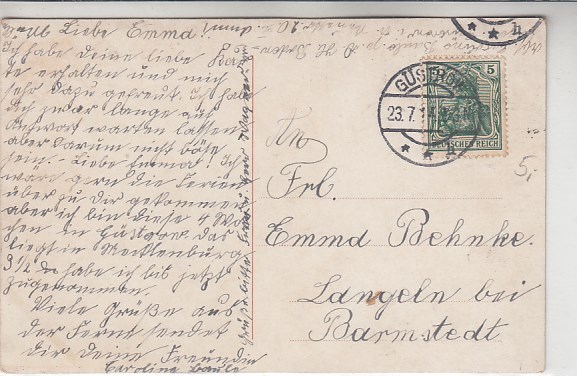 Liebe Emma!
Ich habe deine liebe Kar-
te erhalten und mich
sehr dazu gefreut. Ich habe
Dich zwar lange auf
Antwort warten lassen
aber darum nicht böse
sein. - Liebe Emma! Ich
wäre gern die Ferien
über zu dir gekommen
aber ich bin diese 4 Wo-
chen in Güstrow. Das
liegt in Mecklenburg
3 1/2 habe ich bis jetzt
zugenommen.
Viele Grüße aus
der Fernt sendet
dir deine Freundin
Caroline
Grüße bitte
GÜSTROW
23.7.1
5
DEUTSCHES REICH
h
An
Frl.
Emma Behnke.
Langeln bei
Barmstedt
5,